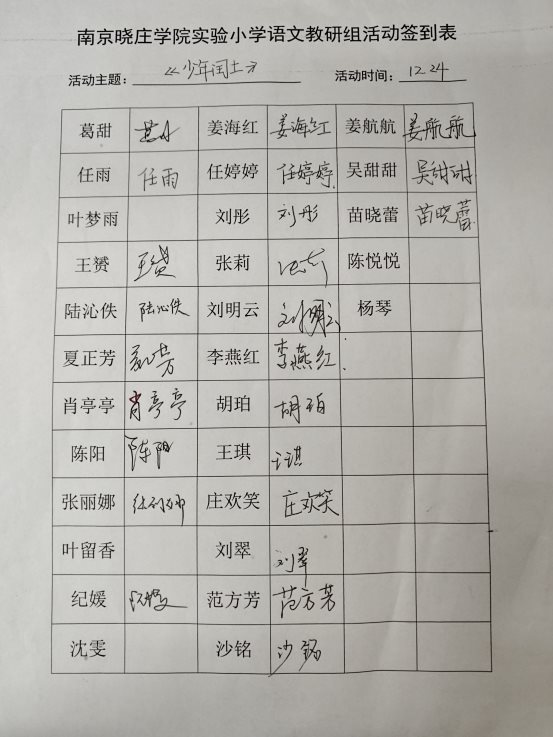 南京晓庄学院实验小学语文教研组活动签到表
活动主题： 《少年闰土》 活动时间： 12.24
葛甜 姜海红 姜海红 姜航航 姜航航
任雨 任雨 任婷婷 任婷婷 吴甜甜 吴甜甜
叶梦雨 刘彤 刘彤 苗晓蕾 苗晓蕾
王赟 王赟 张莉 陈悦悦
陆沁佚 陆沁佚 刘明云 刘明云 杨琴
夏正芳 李燕红 李燕红
肖亭亭 肖亭亭 胡珀 胡珀
陈阳 陈阳 王琪
张丽娜 张丽娜 庄欢笑 庄欢笑
叶留香 刘翠 刘翠
纪媛 范方芳 范方芳
沈雯 沙铭 沙铭